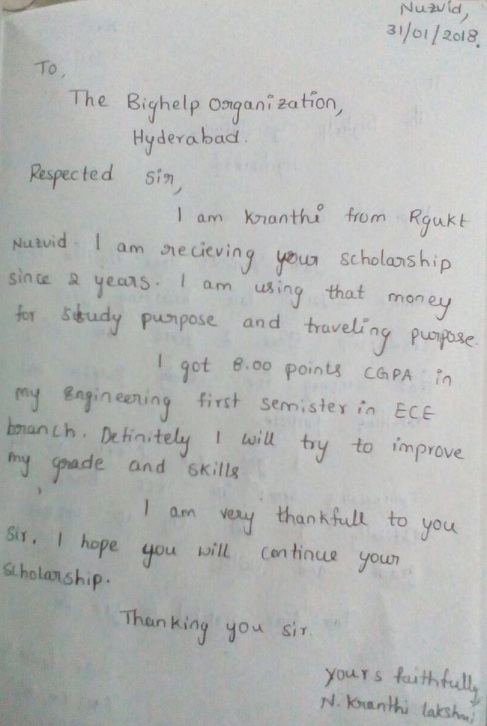 Nuzvid,
31/01/2018.
To,
The Bighelp Organization,
Hyderabad.
Respected Sir,
I am Kranthi from Rgukt
Nuzvid. I am recieving your scholarship
since 2 years. I am using that money
for study purpose and traveling purpose.
I got 8.00 points CGPA in
my Engineering first semister in ECE
branch. Definitely I will try to improve
my grade and skills
I am very thankfull to you
Sir. I hope you will continue your
scholarship.
Thanking you sir.
yours faithfully
N. Kranthi lakshmi